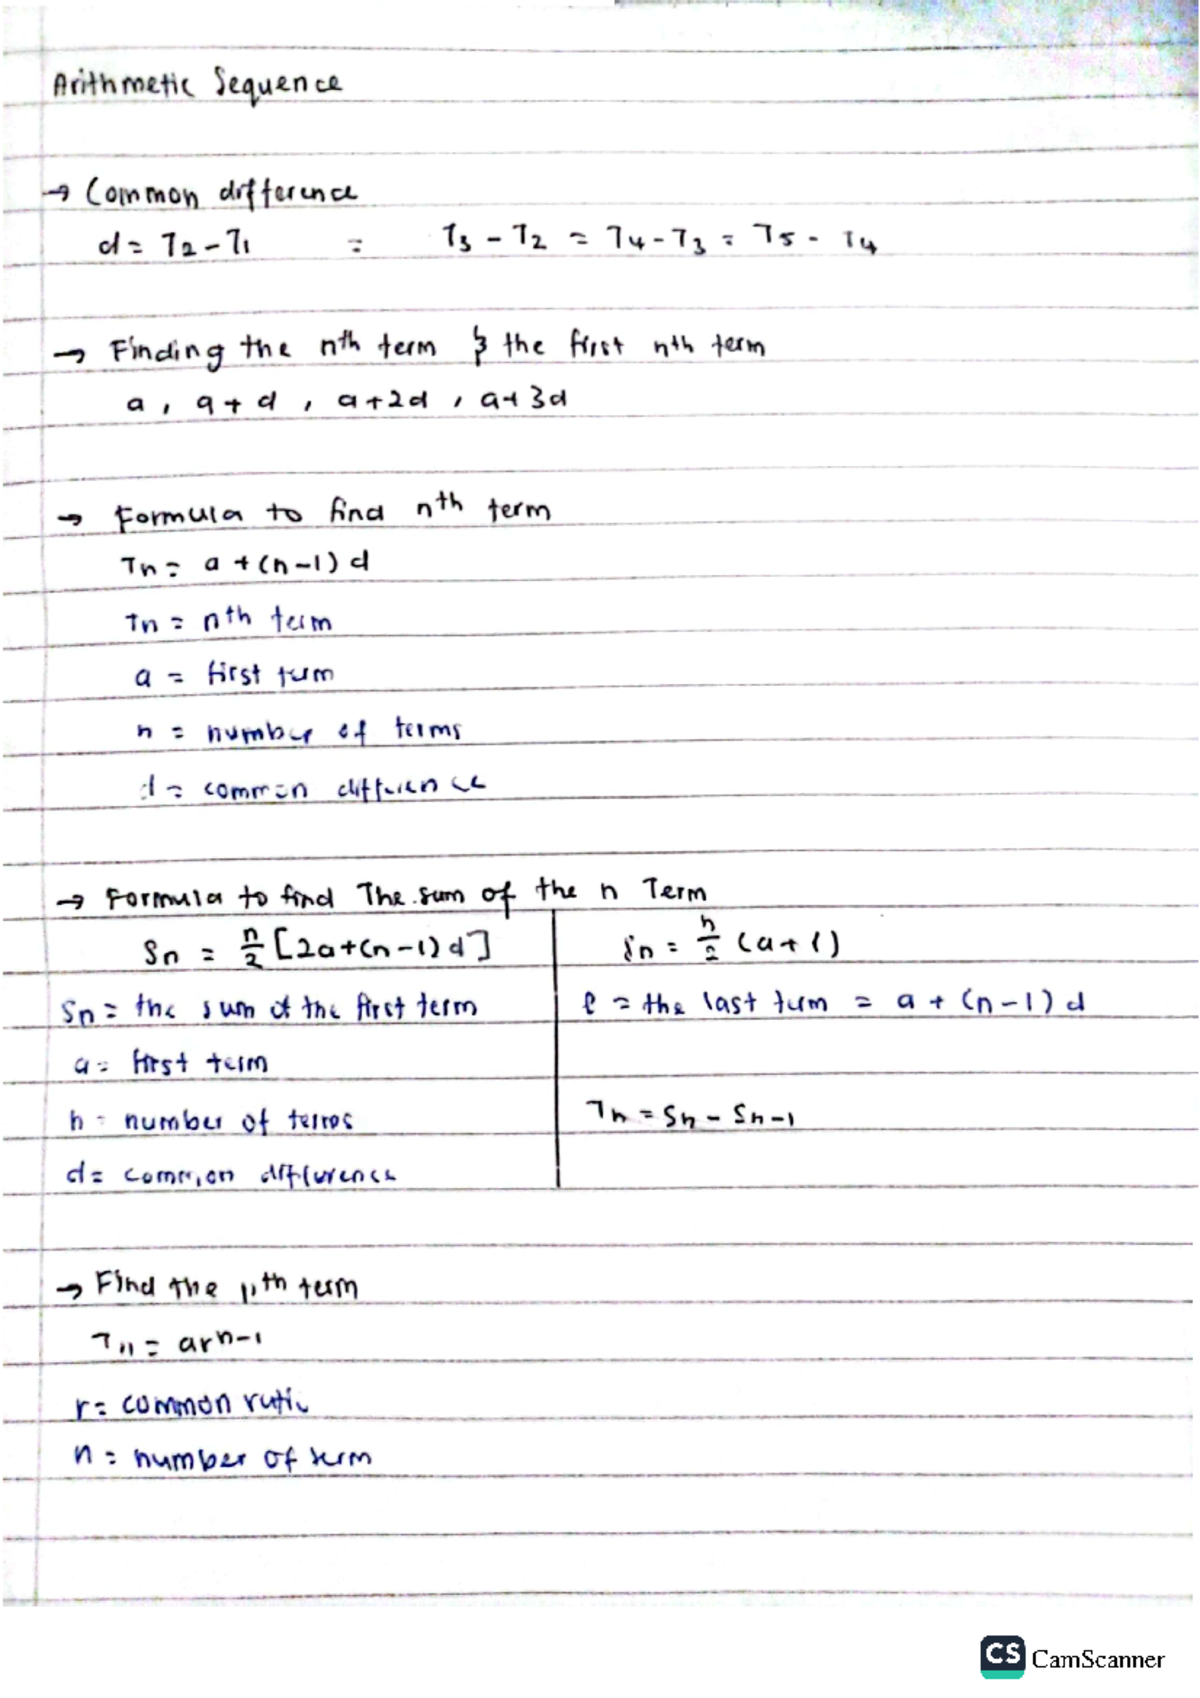 Arithmetic Sequence
→ Common difference
d = T2 - T1 = T3 - T2 = T4 - T3 = T5 - T4
→ Finding the nth term & the first nth term
a, a + d, a + 2d, a + 3d
→ Formula to find nth term
Tn = a + (n-1) d
Tn = nth term
a = first term
n = number of terms
d = common difference
→ Formula to find The sum of the n Term
Sn = n/2 [2a + (n-1) d]
Sn = the sum of the first term
a = first term
n = number of terms
d = common difference
Sn = n/2 (a + l)
l = the last term = a + (n-1) d
Tn = Sn - Sn-1
→ Find the nth term
Tn = ar^n-1
r = common ratio
n = number of term
CS CamScanner